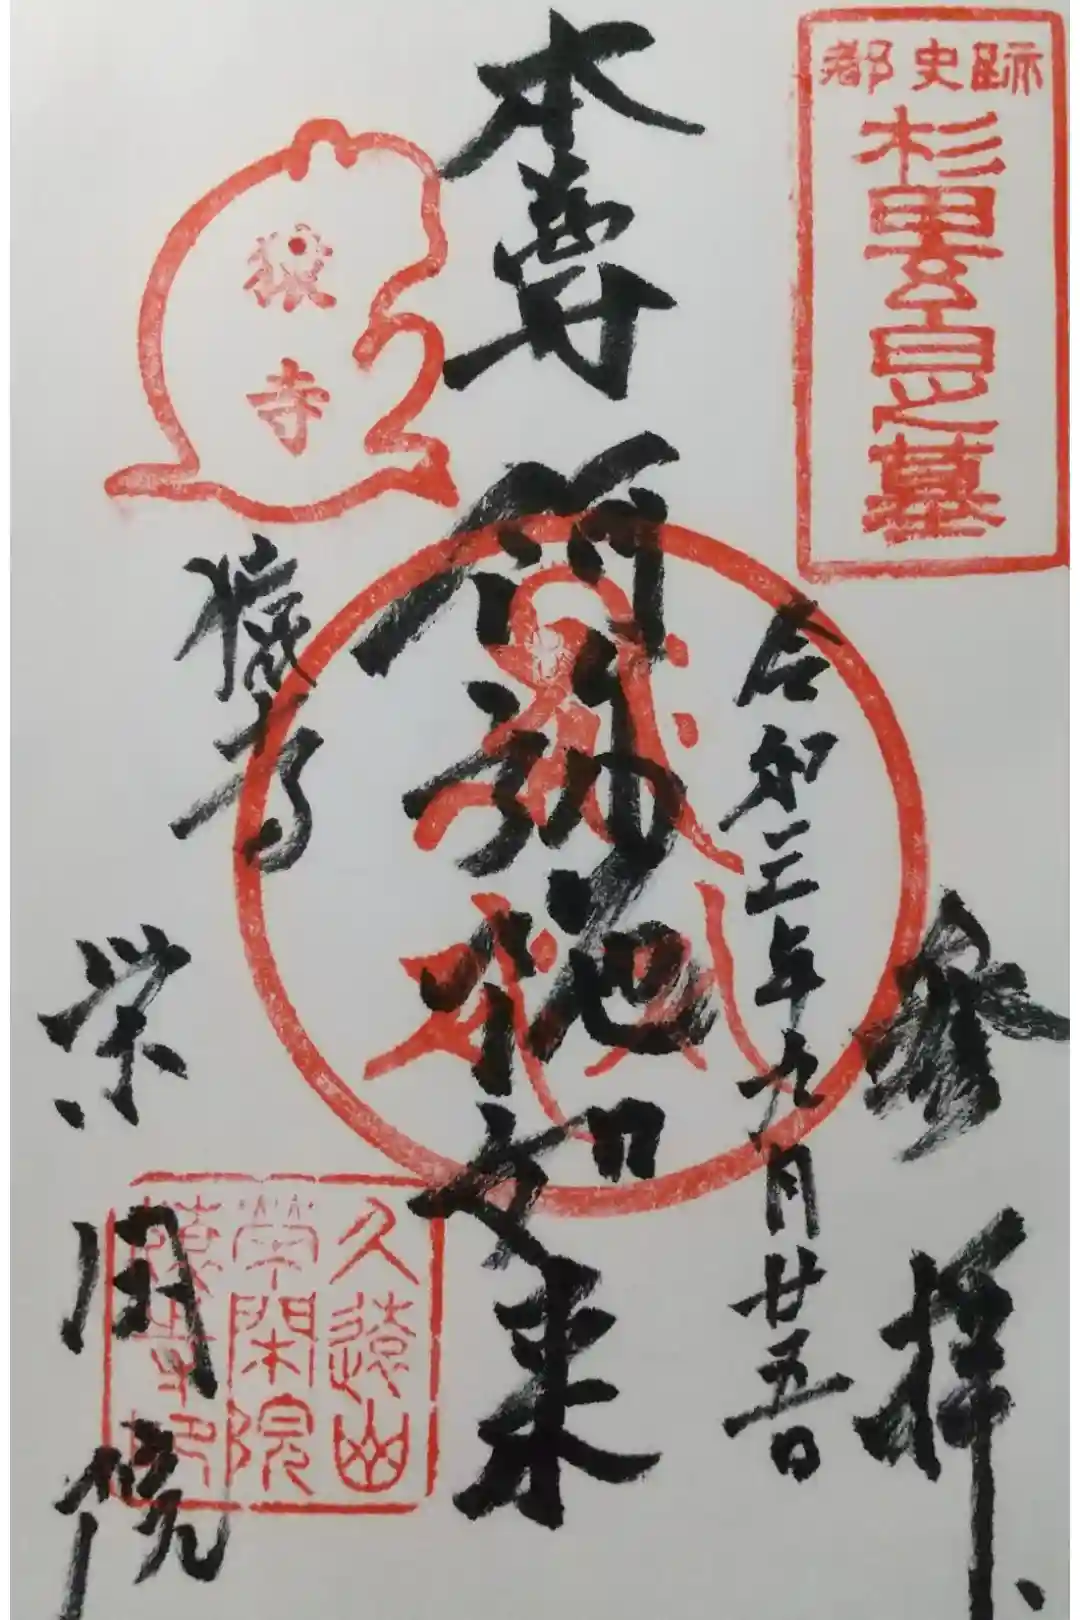 都史跡
杉田玄白之墓
参拝
令和三年九月廿五日
本尊
阿弥陀如来
猿寺
猿寺
栄閑院
久遠山
栄閑院
猿寺印